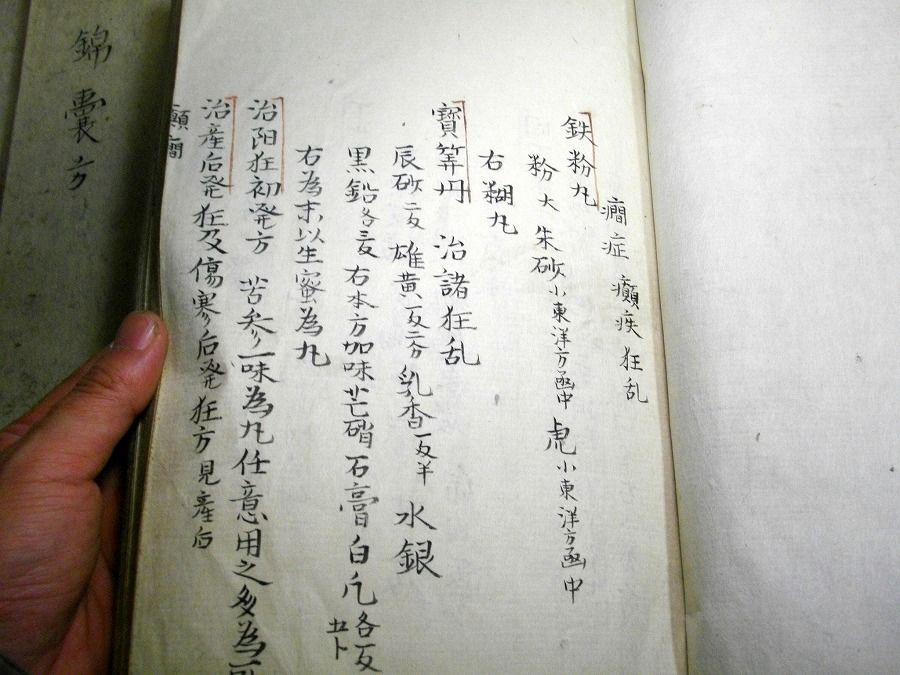 癎症 癲疾 狂乱
鉄粉丸
粉 大 朱砂 小東洋方函中 虎 小東洋方函中
右糊丸
寳筭丹 治諸狂乱
辰砂 雄黄 乳香 水銀
黒鉛各 右本方加味芒硝石膏白凡各
右為末以生蜜為丸
治阳狂初発方 苦参一味為丸任意用之多為
治産后発狂及傷寒后発狂方見産后
癲癇
錦嚢方